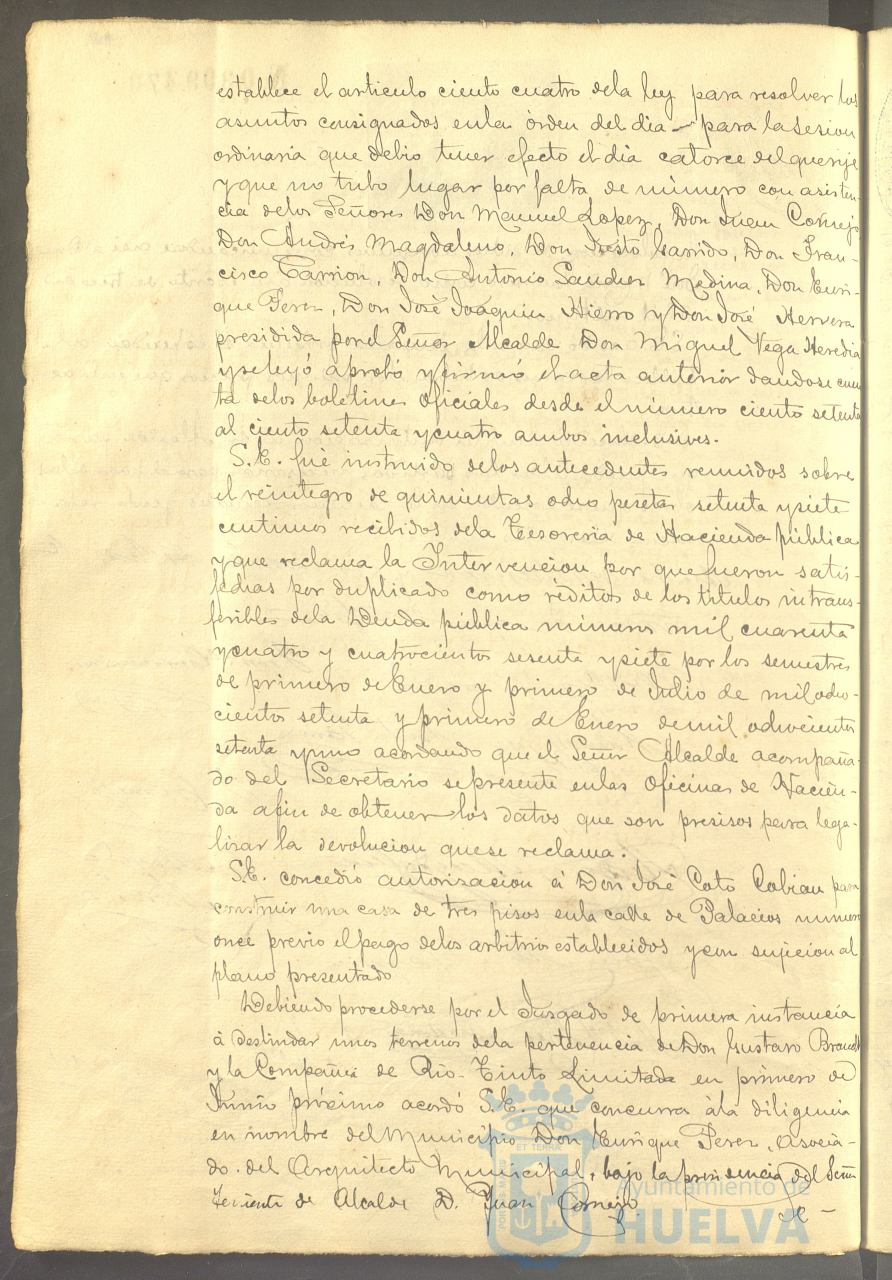 establece el articulo ciento cuatro dela ley para resolver los
asuntos consignados enla órden del dia para la sesion
ordinaria que debio tener efecto el dia catorce del que rije
y que no tubo lugar por falta de número con asisten-
cia delos Señores Don Manuel Lopez, Don Juan Cornejo
Don Andrés Magdaleno, Don Justo Garrido, Don Fran-
cisco Carrion, Don Antonio Sanchez Medina, Don Enri-
que Perez, Don José Joaquin Hierro y Don José Hervera
presidida por el Señor Alcalde Don Miguel Vega Heredia
y se leyó aprobó y firmó el acta anterior dandose cuen
ta delos boletines oficiales desde el número ciento setenta
al ciento setenta y cuatro ambos inclusives.
S.E. fué instruido delos antecedentes reunidos sobre
el reintegro de quinientas ocho pesetas setenta y siete
centimos recibidos dela Tesoreria de Hacienda pública
y que reclama la Intervencion por que fueron satis-
fechas por duplicado como réditos de los titulos intrans-
feribles dela Deuda pública números mil cuarenta
y cuatro y cuatrocientos sesenta y siete por los semestres
de primero de Enero y primero de Julio de mil ocho-
cientos setenta y primero de Enero de mil ochocientos
setenta y uno acordando que el Señor Alcalde acompaña-
do del Secretario se presente enlas oficinas de Hacien-
da afin de obtener los datos que son presisos para lega-
lizar la devolucion que se reclama.
S.E. concedió autorizacion á Don José Coto Cobian para
construir una casa de tres pisos enla calle de Palacios numero
once previo el pago delos arbitrios establecidos y con sujecion al
plano presentado
Debiendo procederse por el Jusgado de primera instancia
á deslindar unos terrenos dela pertenencia de Don Gustavo Brandt
y la Compañia de Rio-Tinto Limitada en primero de
Junio próximo acordó S.E. que concurra á la diligencia
en nombre del Municipio Don Enrique Perez, asocia-
do del Arquitecto Municipal, bajo la presidencia del Señor
Teniente de Alcalde D. Juan Cornejo
Ayuntamiento de
HUELVA